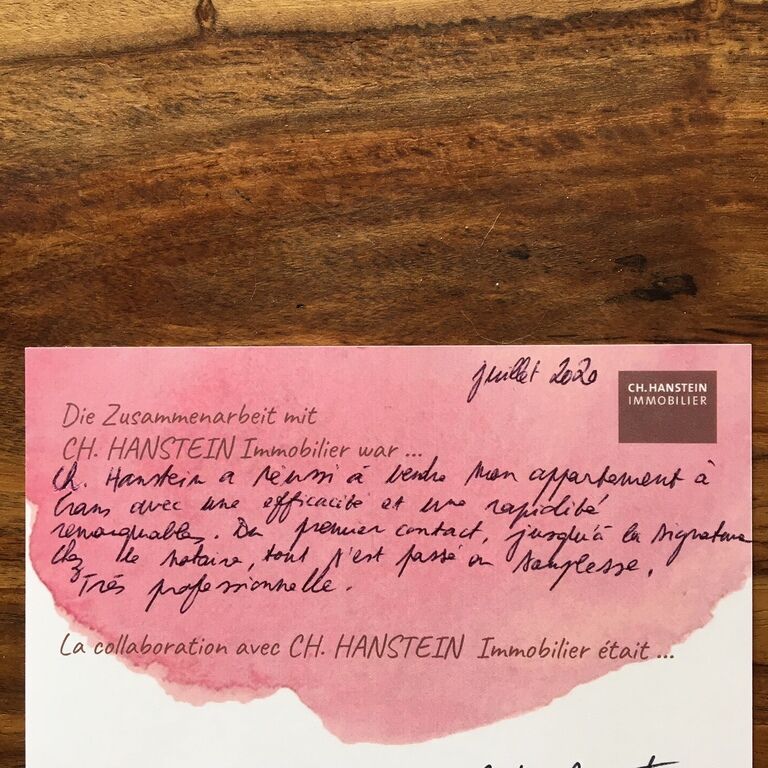 juillet 2020
CH. HANSTEIN
IMMOBILIER
Die Zusammenarbeit mit
CH. HANSTEIN Immobilier war ...
Ch. Hanstein a réussi à vendre mon appartement à
Crans avec une efficacité et une rapidité
remarquables. Du premier contact, jusqu'à la signature
chez le notaire, tout s'est passé en souplesse.
Très professionnelle.
La collaboration avec CH. HANSTEIN Immobilier était ...